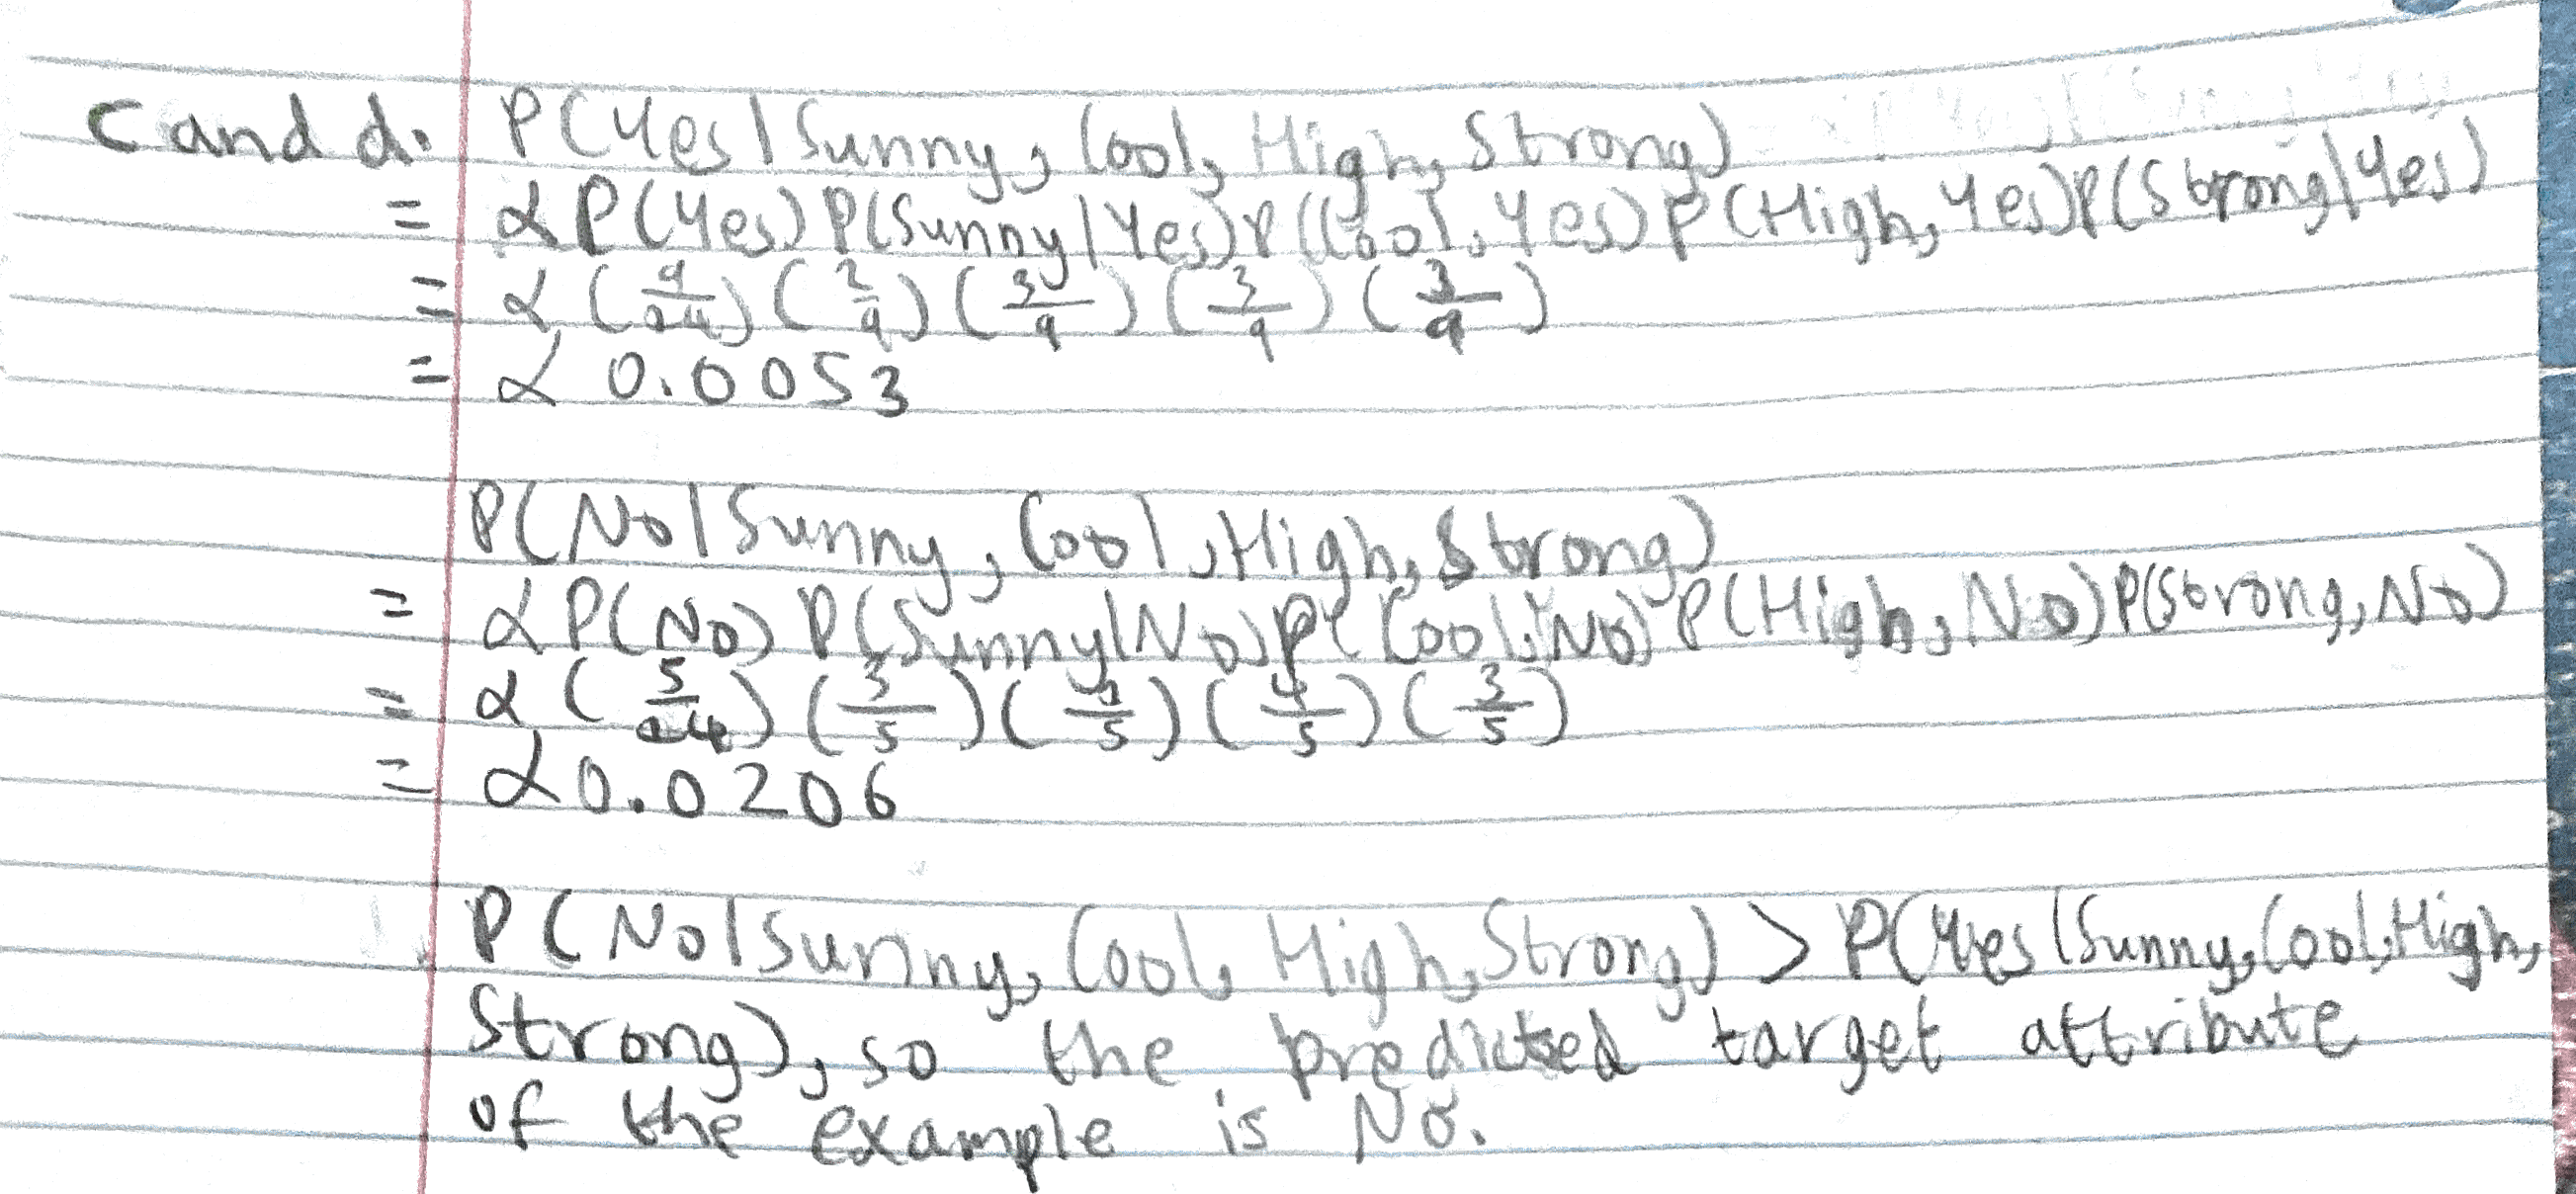 c and d. P(Yes | Sunny, Cool, High, Strong)
= α P(Yes) P(Sunny | Yes) P(Cool, Yes) P(High, Yes) P(Strong | Yes)
= α (9/14) (2/9) (3/9) (3/9) (3/9)
= α 0.0053
P(No | Sunny, Cool, High, Strong)
= α P(No) P(Sunny | No) P(Cool, No) P(High, No) P(Strong, No)
= α (5/14) (3/5) (1/5) (4/5) (3/5)
= α 0.0206
P(No | Sunny, Cool, High, Strong) > P(Yes | Sunny, Cool, High,
Strong), so the predicted target attribute
of the example is No.